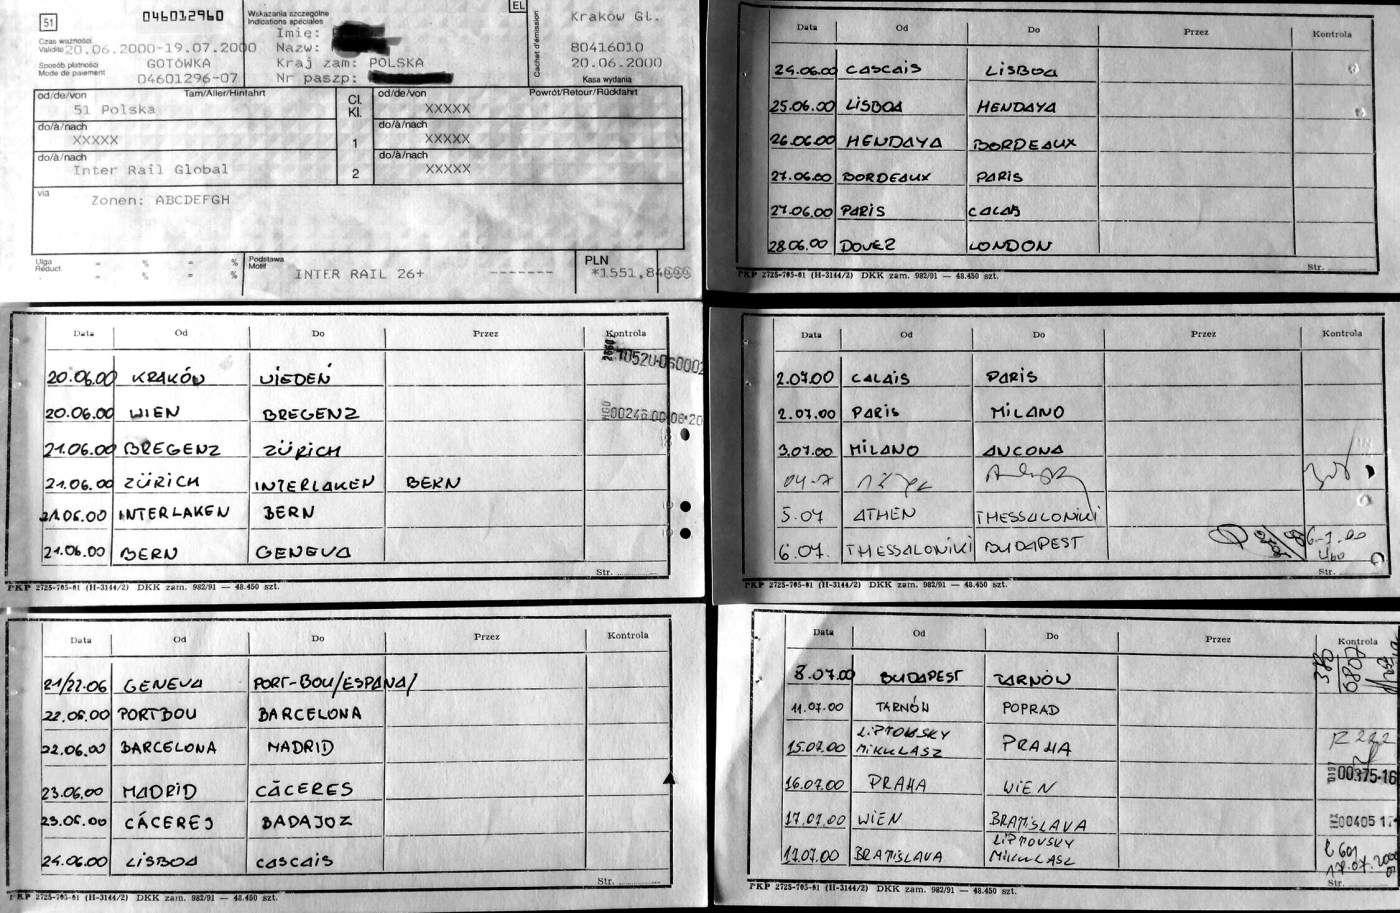 51
046012960
Wskazania szczególne
Indications spéciales
EL
Kraków Gł.
Imię:
Czas ważności
Validité 20.06.2000-19.07.2000
Nazw:
80416010
Sposób płatności
Mode de paiement
GOTÓWKA
Kraj zam: POLSKA
20.06.2000
04601296-07
Nr paszp:
Kasa wydania
Cachet d'émission
od/de/von Tam/Aller/Hinfahrt
Cl. Kl.
od/de/von Powrót/Retour/Rückfahrt
51 Polska
XXXXX
do/à/nach
do/à/nach
XXXXX
1
XXXXX
do/à/nach
do/à/nach
Inter Rail Global
2
XXXXX
via
Zonen: ABCDEFGH
Ulga
Réduct.
= % = %
= % = %
Podstawa
Motif
INTER RAIL 26+
-------
PLN
Data Od Do Przez Kontrola
20.06.00 KRAKÓW WIEDEŃ
20.06.00 WIEN BREGENZ
21.06.00 BREGENZ ZÜRICH
21.06.00 ZÜRICH INTERLAKEN BERN
21.06.00 INTERLAKEN BERN
21.06.00 BERN GENEVA
Str.
PKP 2725-705-01 (H-3144/2) DKK zam. 982/91 — 48.450 szt.
Data Od Do Przez Kontrola
21/22.06 GENEVA PORT-BOU/ESPANA/
22.06.00 PORTBOU BARCELONA
22.06.00 BARCELONA MADRID
23.06.00 MADRID CÁCERES
23.06.00 CÁCERES BADAJOZ
24.06.00 LISBOA CASCAIS
Str.
PKP 2725-705-01 (H-3144/2) DKK zam. 982/91 — 48.450 szt.
Data Od Do Przez Kontrola
24.06.00 CASCAIS LISBOA
25.06.00 LISBOA HENDAYA
26.06.00 HENDAYA BORDEAUX
27.06.00 BORDEAUX PARIS
27.06.00 PARIS CALAIS
28.06.00 DOVER LONDON
Str.
PKP 2725-705-01 (H-3144/2) DKK zam. 982/91 — 48.450 szt.
Data Od Do Przez Kontrola
2.07.00 CALAIS PARIS
2.07.00 PARIS MILANO
3.07.00 MILANO ANCONA
04-7
5.07 ATHEN THESSALONIKI
6.07. THESSALONIKI BUDAPEST
Str.
PKP 2725-705-01 (H-3144/2) DKK zam. 982/91 — 48.450 szt.
Data Od Do Przez Kontrola
8.07.00 BUDAPEST TARNÓW
11.07.00 TARNÓW POPRAD
15.07.00 LIPTOVSKY MIKULASZ PRAHA
16.07.00 PRAHA WIEN
17.07.00 WIEN BRATISLAVA
17.07.00 BRATISLAVA LIPTOVSKY MIKULASZ
Str.
PKP 2725-705-01 (H-3144/2) DKK zam. 982/91 — 48.450 szt.